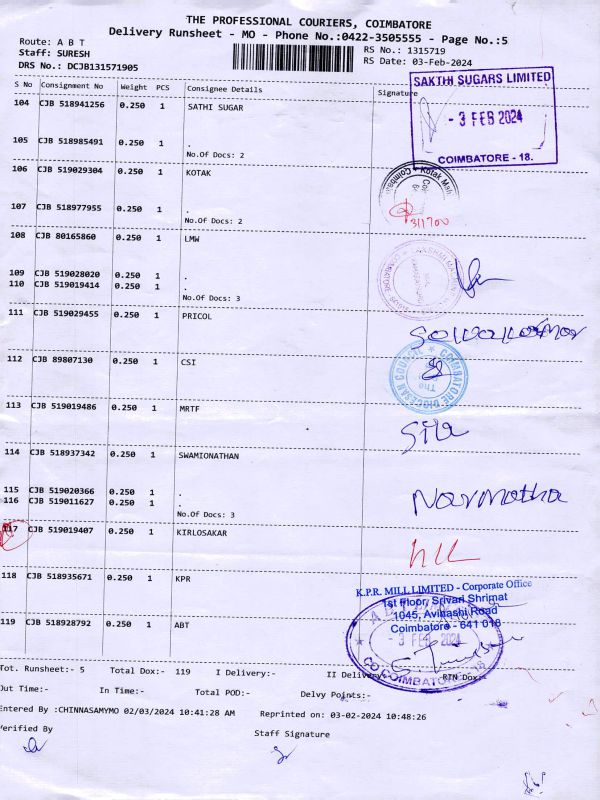 THE PROFESSIONAL COURIERS, COIMBATORE
Delivery Runsheet - MO - Phone No.:0422-3505555 - Page No.:5
Route: A B T
RS No.: 1315719
Staff: SURESH
RS Date: 03-Feb-2024
DRS No.: DCJB131571905
S No Consignment No Weight PCS Consignee Details Signature
SAKTHI SUGARS LIMITED
- 3 FEB 2024
COIMBATORE - 18.
104 CJB 518941256 0.250 1 SATHI SUGAR
105 CJB 518985491 0.250 1 .
No.Of Docs: 2
106 CJB 519029304 0.250 1 KOTAK
Kotak Mah
Coimba
107 CJB 518977955 0.250 1 .
No.Of Docs: 2
311700
108 CJB 80165860 0.250 1 LMW
109 CJB 519028020 0.250 1 .
110 CJB 519019414 0.250 1 .
No.Of Docs: 3
111 CJB 519029455 0.250 1 PRICOL
112 CJB 89807130 0.250 1 CSI
COIMBATORE DIOCESAN COUNCIL
The
113 CJB 519019486 0.250 1 MRTF
114 CJB 518937342 0.250 1 SWAMIONATHAN
115 CJB 519020366 0.250 1 .
116 CJB 519011627 0.250 1 .
No.Of Docs: 3
Narmatha
117 CJB 519019407 0.250 1 KIRLOSAKAR
118 CJB 518935671 0.250 1 KPR
K.P.R. MILL LIMITED - Corporate Office
1st Floor, Srivari Shrimat
1045, Avinashi Road
Coimbatore - 641 018
119 CJB 518928792 0.250 1 ABT
3 FEB 2024
Tot. Runsheet:- 5 Total Dox:- 119 I Delivery:- II Delivery:- RTN Dox:-
Out Time:- In Time:- Total POD:- Delvy Points:-
Entered By :CHINNASAMYMO 02/03/2024 10:41:28 AM Reprinted on: 03-02-2024 10:48:26
Verified By
Staff Signature